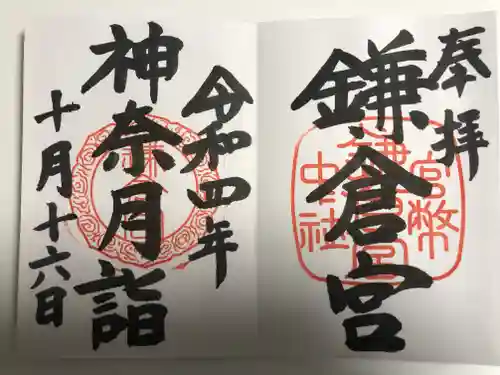 奉拝
鎌倉宮
官幣中社
鎌倉宮
令和四年
神奈月詣
十月十六日